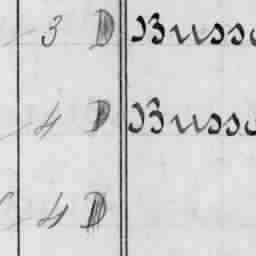 3 D Busso
4 D Busso
4 D